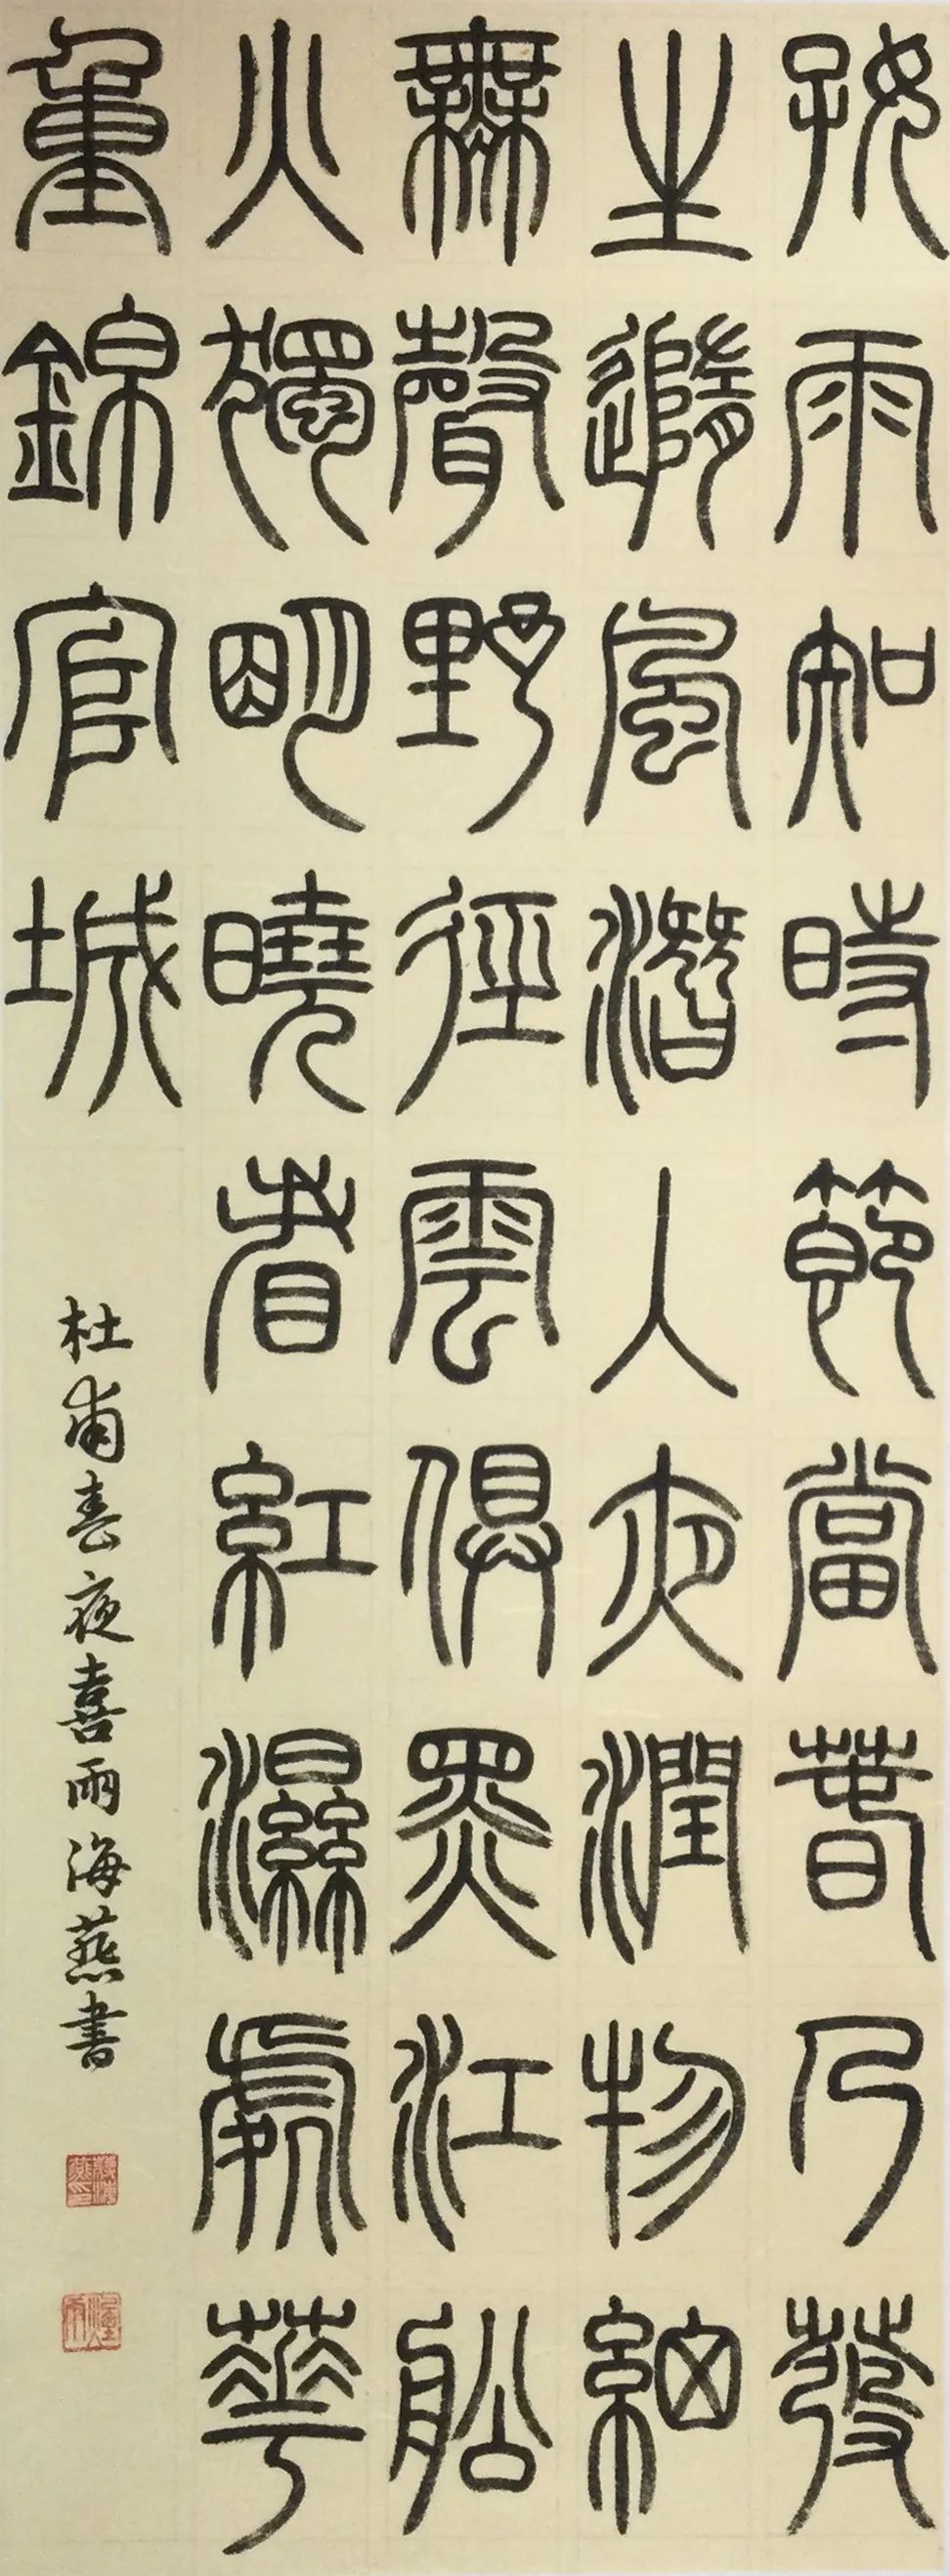 好雨知時節當春乃發
生隨風潛入夜潤物細
無聲野徑雲俱黑江船
火獨明曉看紅濕處華
重錦官城
杜甫春夜喜雨海燕書